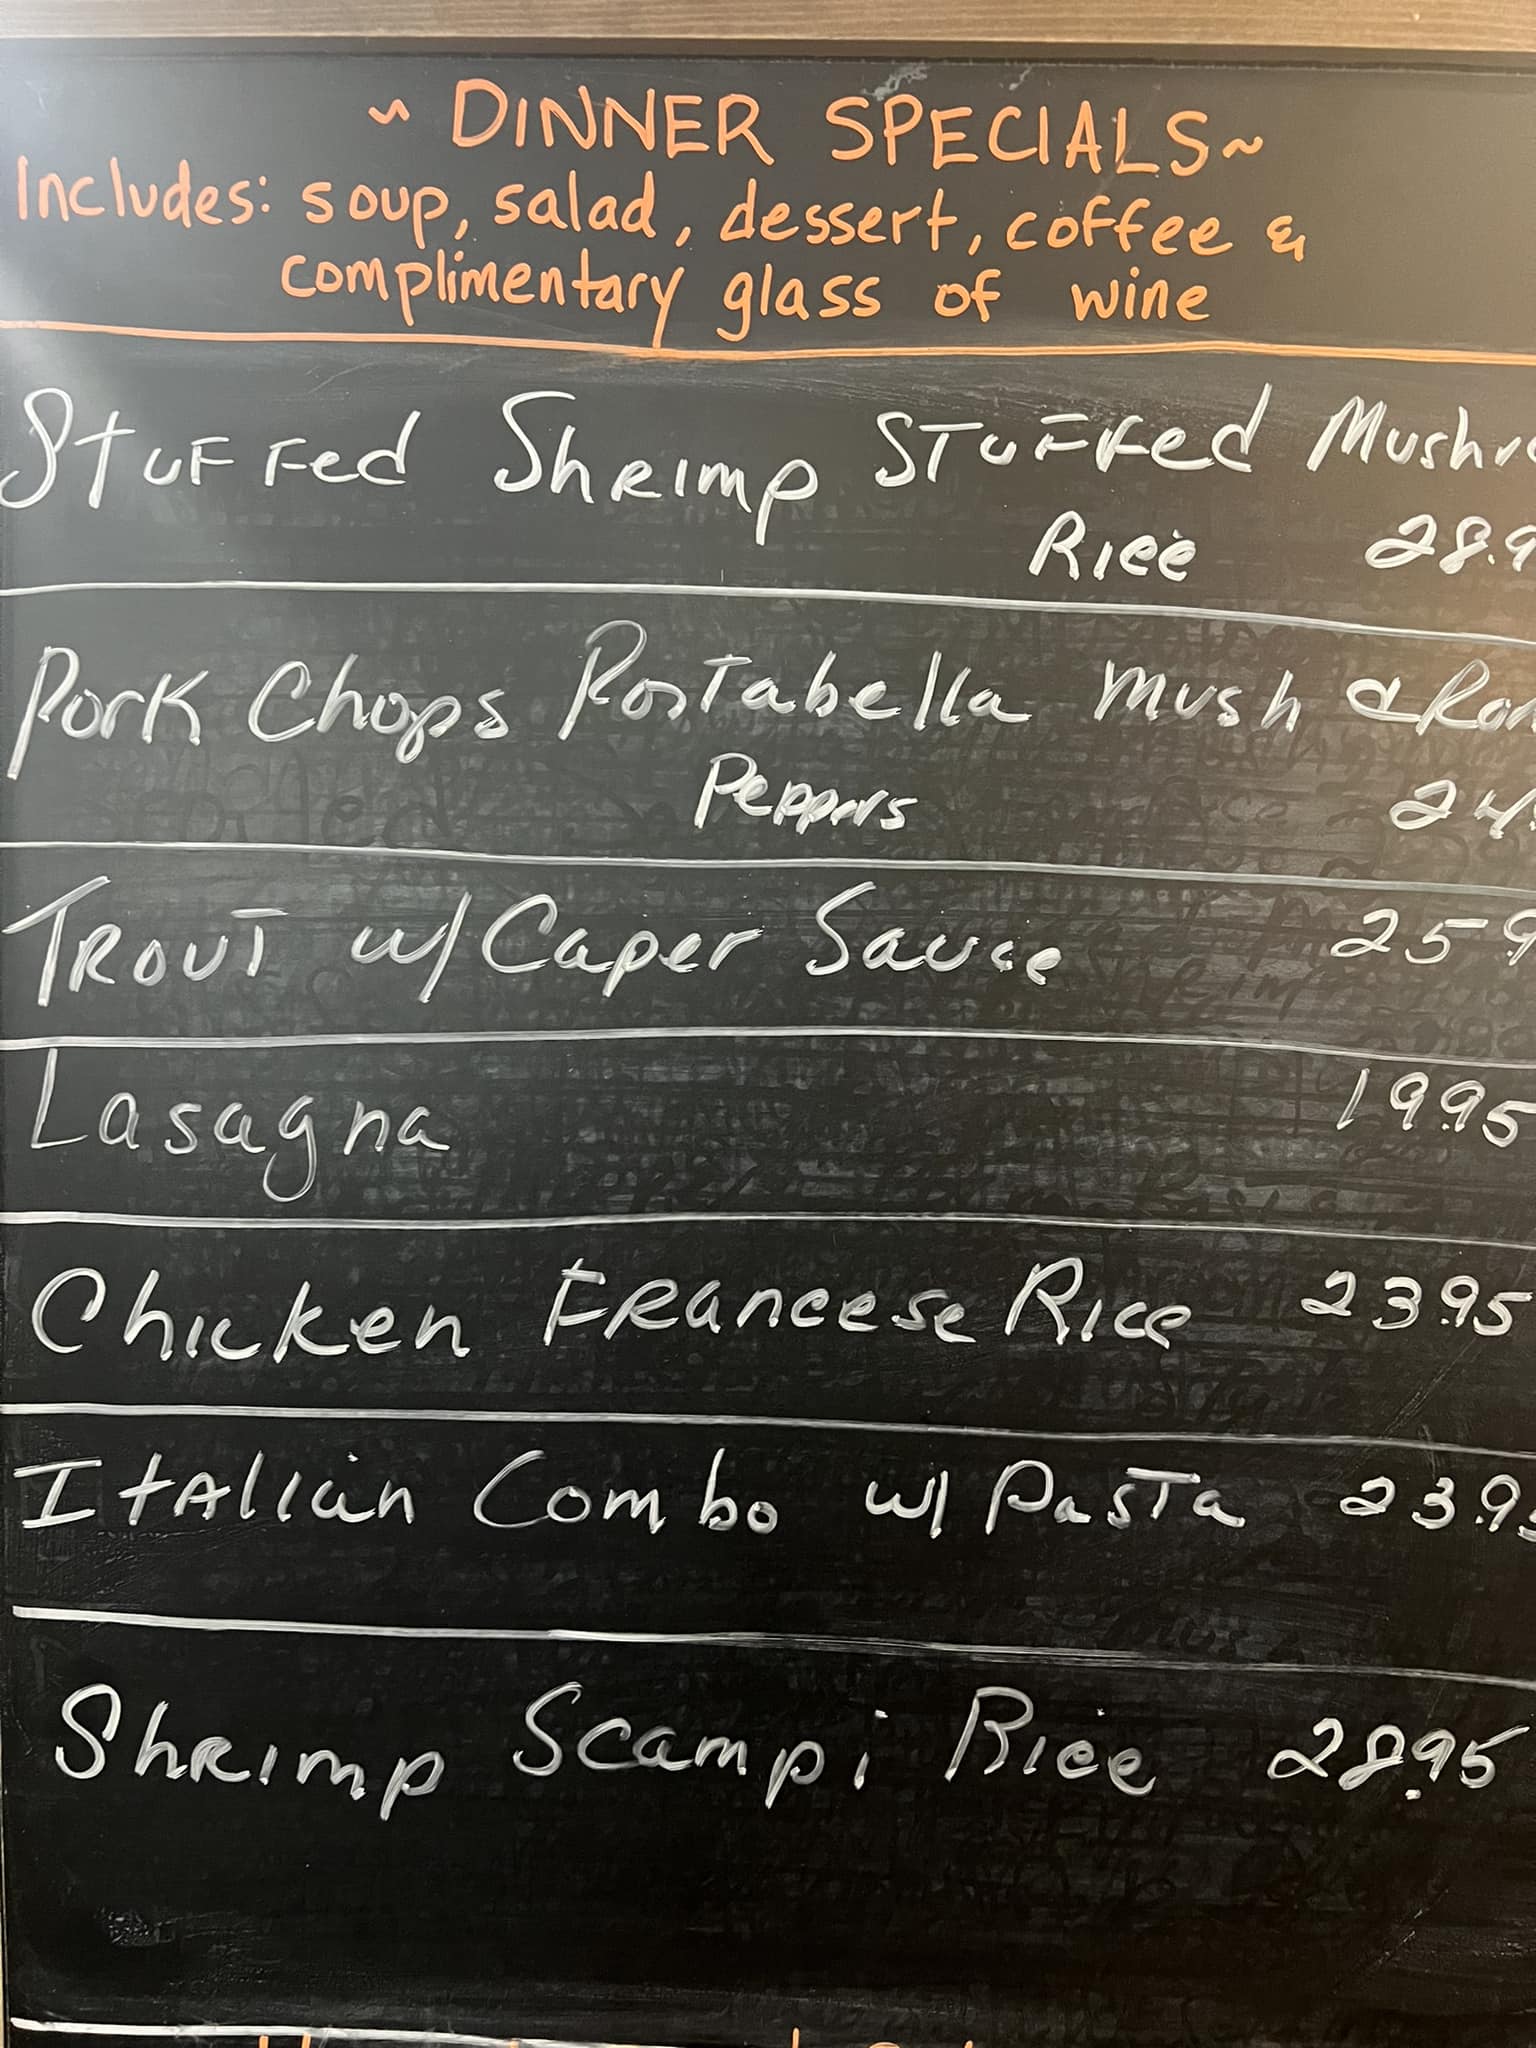 ~ DINNER SPECIALS ~
Includes: soup, salad, dessert, coffee &
complimentary glass of wine
Stuffed Shrimp Stuffed Mushr
Rice 28.9
Pork Chops Portabella Mush & Roa
Peppers 24.
Trout w/ Caper Sauce 25 9
Lasagna 19.95
Chicken Francese Rice 23.95
Italian Combo w/ Pasta 23.95
Shrimp Scampi Rice 28.95